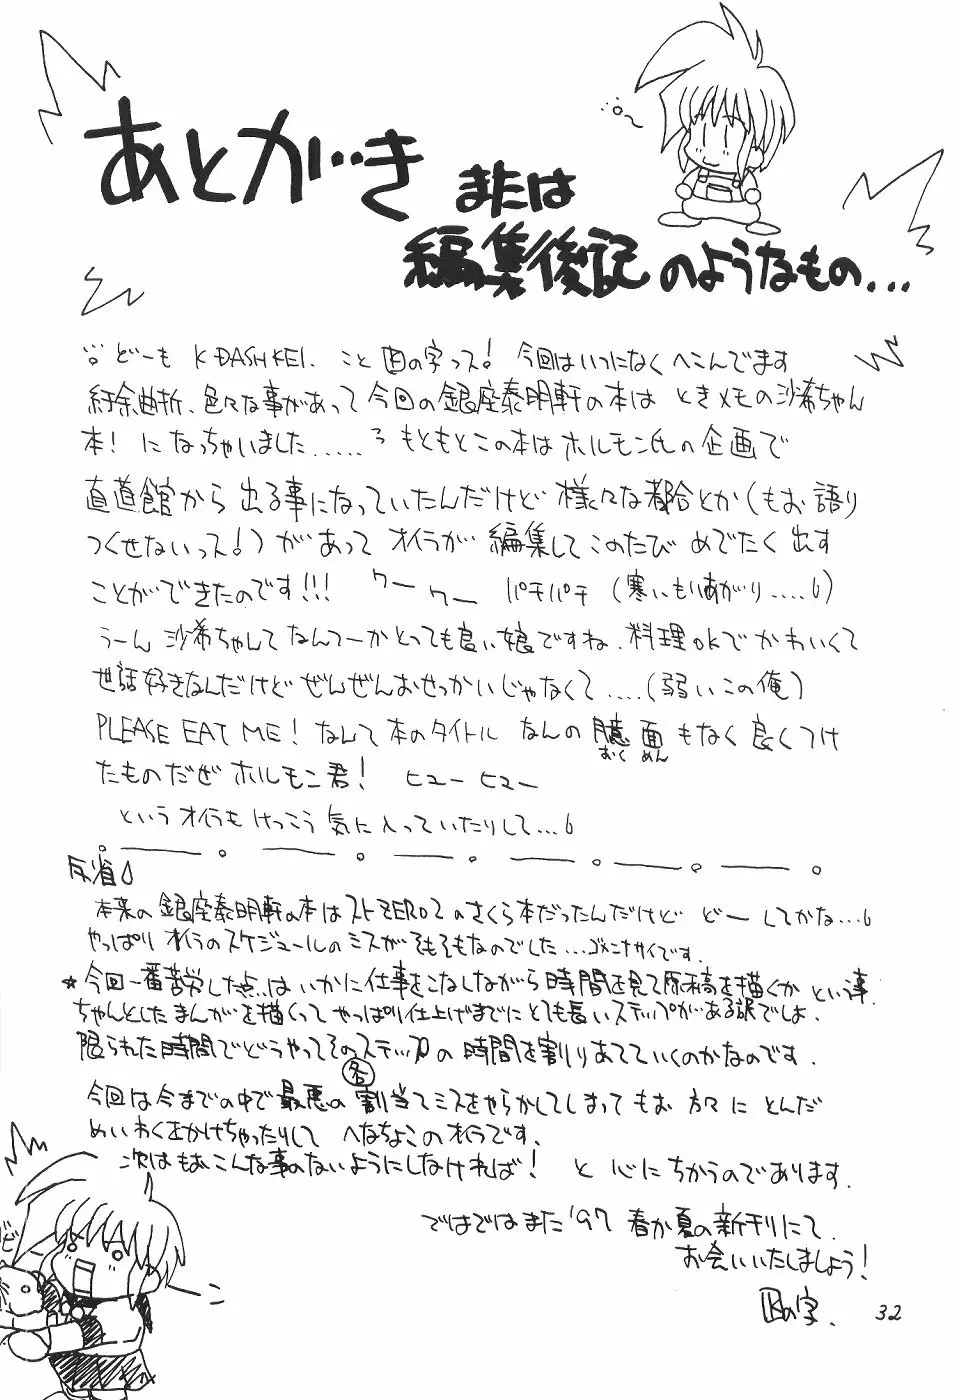 あとがき
または
編集後記のようなもの...
どーも K-DASHKEI. こと 図の字っス! 今回はいつになくへこんでます
紆余曲折、色々な事があって今回の銀座泰明軒の本は ときメモの沙希ちゃん
本! になっちゃいました..... もともとこの本はホルモン氏の企画で
直道館から出る事になっていたんだけど 様々な都合とか(もお語り
つくせないっス!)があって オイラが 編集してこのたび めでたく出す
ことができたのです!!! ワー ワー パチパチ (寒いもりあがり.....)
うーん 沙希ちゃんてなんてーかとっても良い娘ですね. 料理OKでかわいくて
世話好きなんだけど ぜんぜんおせっかいじゃなくて....(弱いこの俺)
PLEASE EAT ME! なんて本のタイトル なんの 臆面もなく良くつけ
おく めん
たものだぜ ホルモン君! ヒューヒュー
というオイラもけっこう気に入っていたりして...
反省
本来の銀座泰明軒の本はストZERO2のさくら本だったんだけど どーしてかな...
やっぱりオイラのスケジュールのミスがそもそもなのでした...ゴメンナサイです.
★今回一番苦労した点は いかに仕事をこなしながら時間を見て原稿を描くかという事.
ちゃんとしたまんがを描くって やっぱり仕上げまでにとても長いステップがある訳でしょ.
限られた時間でどうやってそのステップの時間を割りあてていくのかなのです.
各
今回は今までの中で最悪の割当てミスをやらかしてしまって もお 方々にとんだ
めいわくをかけちゃったりして へなちょこのオイラです.
次はもおこんな事のないようにしなければ! と 心にちかうのであります.
ではではまた'97 春か夏の新刊にて.
お会いいたしましょう!
図の字.
32